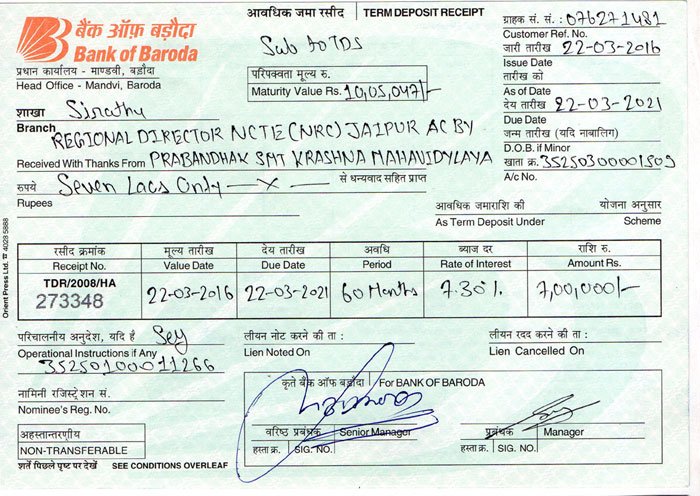 बैंक ऑफ़ बड़ौदा
Bank of Baroda
प्रधान कार्यालय - माण्डवी, बड़ौदा
Head Office - Mandvi, Baroda
आवधिक जमा रसीद | TERM DEPOSIT RECEIPT
Sub to TDS
परिपक्वता मूल्य रु.
Maturity Value Rs. 10,05,047/-
ग्राहक सं. सं. : 076271481
Customer Ref. No.
जारी तारीख 22-03-2016
Issue Date
तारीख को
As of Date
देय तारीख 22-03-2021
Due Date
जन्म तारीख (यदि नाबालिग)
D.O.B. if Minor
खाता क्र. 35250300001509
A/c No.
शाखा Sirathu
Branch
REGIONAL DIRECTOR NCTE (NRC) JAIPUR AC BY
Received With Thanks From PRABANDHAK SMT KRASHNA MAHAVIDYLAYA
रुपये Seven Lacs Only —x— से धन्यवाद सहित प्राप्त
Rupees
आवधिक जमाराशि की योजना अनुसार
As Term Deposit Under Scheme
रसीद क्रमांक मूल्य तारीख देय तारीख अवधि ब्याज दर राशि रु.
Receipt No. Value Date Due Date Period Rate of Interest Amount Rs.
TDR/2008/HA
273348 22-03-2016 22-03-2021 60 Months 7.30% 7,00,000/-
परिचालनीय अनुदेश, यदि है
Operational Instructions if Any
35250100011266
लीयन नोट करने की ता :
Lien Noted On
लीयन रदद करने की ता :
Lien Cancelled On
नामिनी रजिस्ट्रेशन सं.
Nominee's Reg. No.
कृते बैंक ऑफ बड़ौदा | For BANK OF BARODA
वरिष्ठ प्रबंधक Senior Manager
हस्ता क्र. SIG. NO.
प्रबंधक Manager
हस्ता क्र. SIG. NO.
अहस्तान्तरणीय
NON-TRANSFERABLE
शर्तें पिछले पृष्ट पर देखें SEE CONDITIONS OVERLEAF
Orient Press Ltd. ☎ 4028 5888